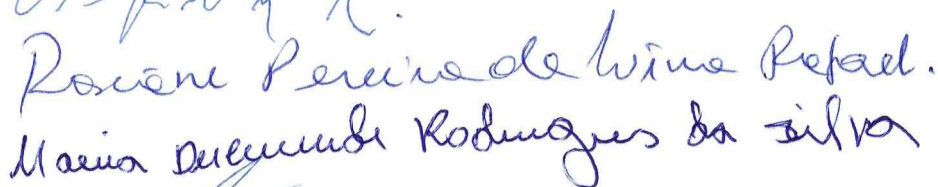 Rosiane Pereira de Lima Rafael.
Maria Rodrigues da Silva